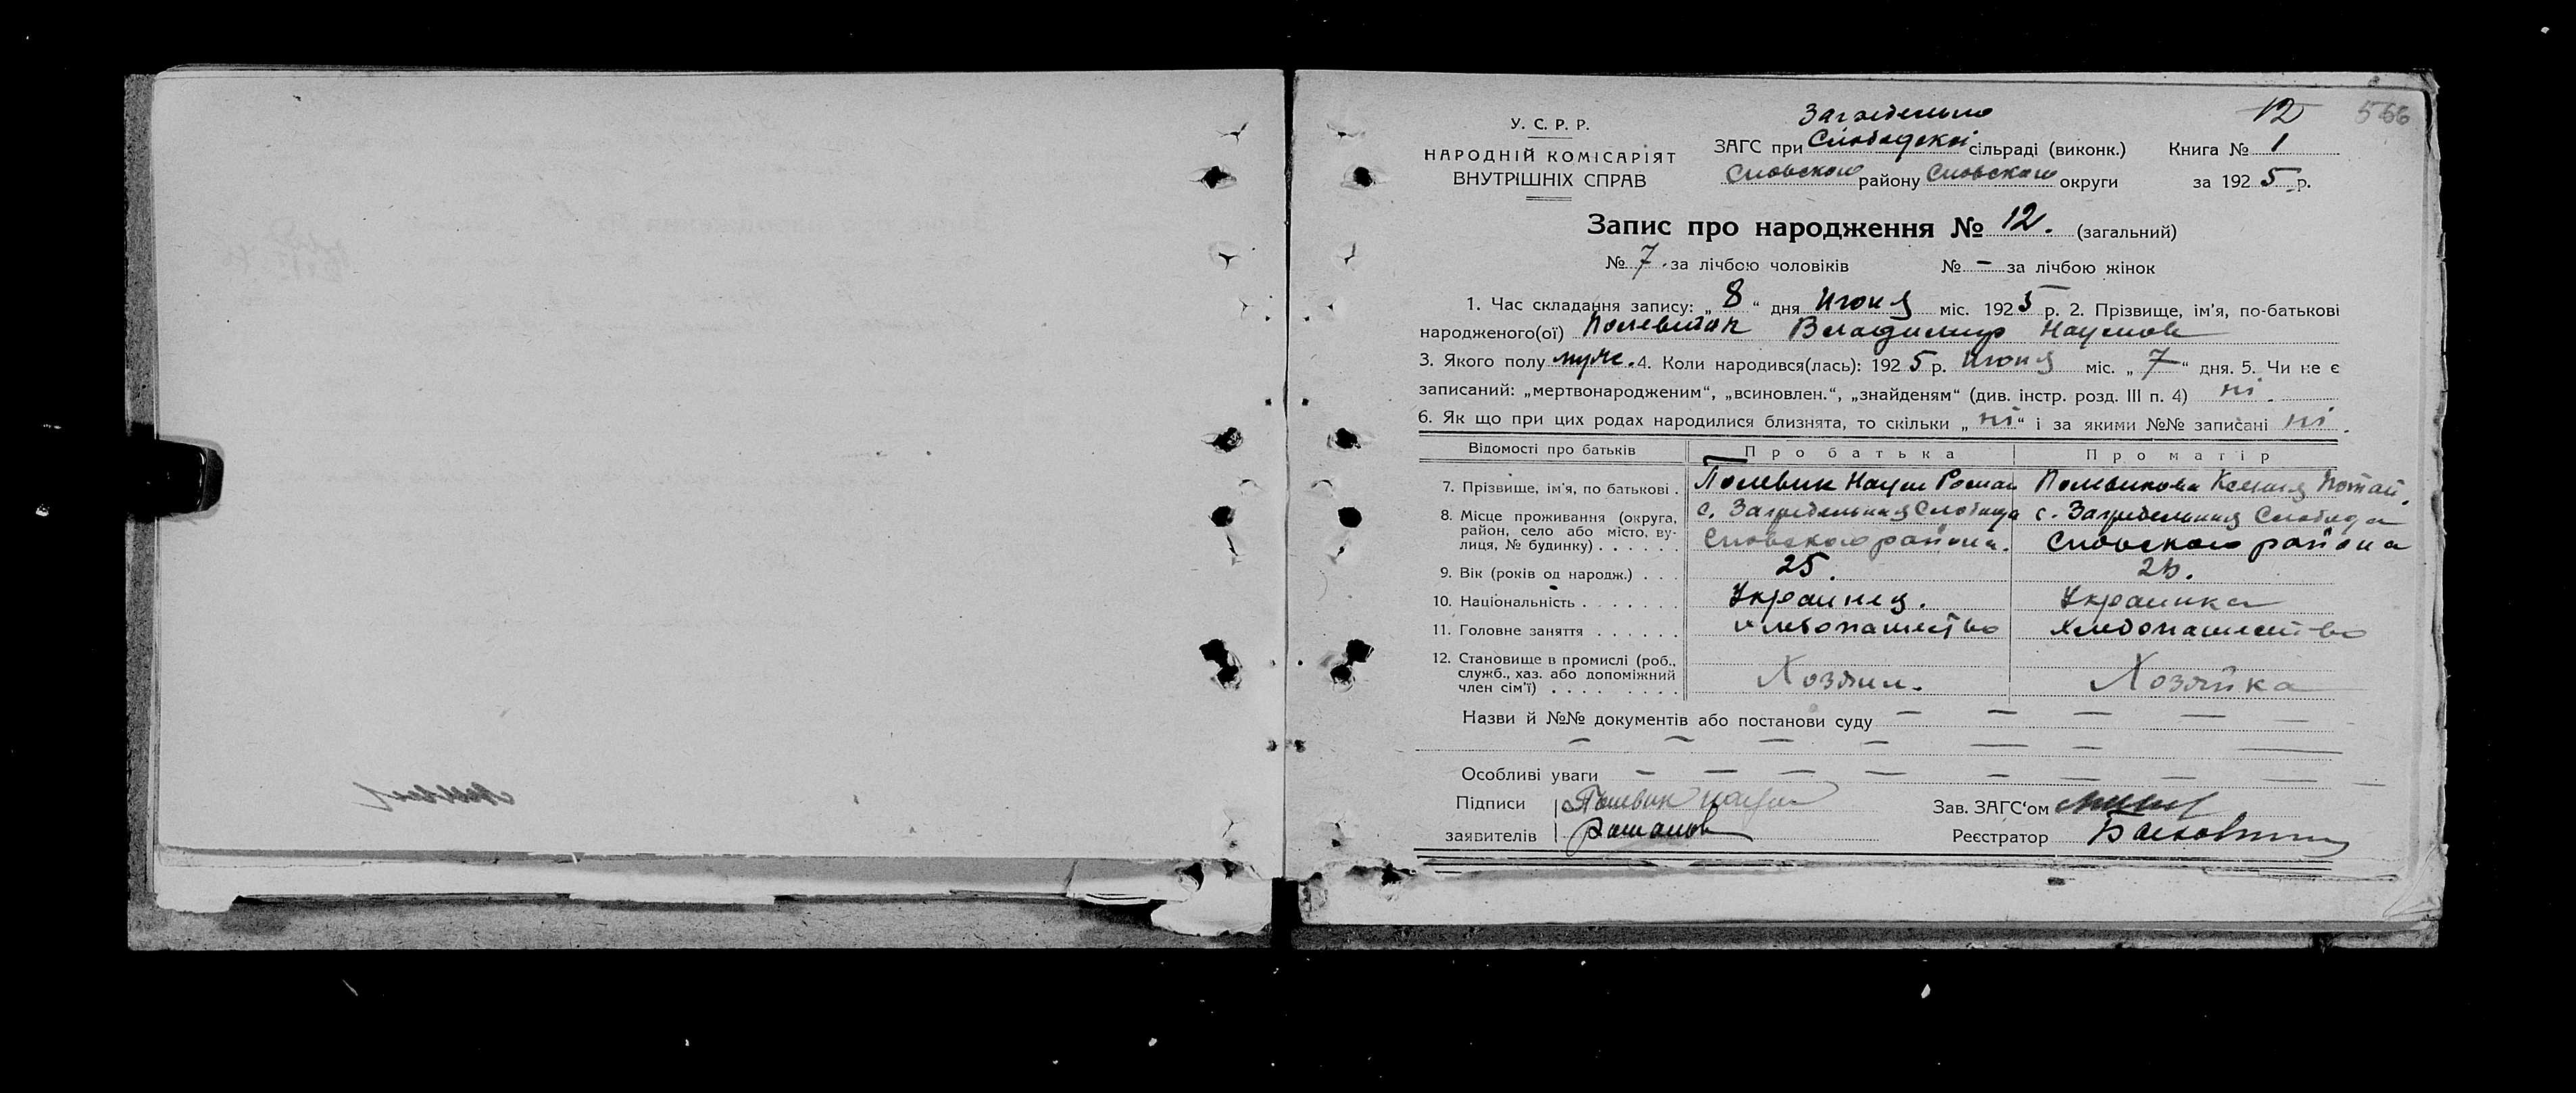 12
566
У. С. Р. Р.
НАРОДНІЙ КОМІСАРІЯТ
ВНУТРІШНІХ СПРАВ
ЗАГС при Слободской сільраді (виконк.) Книга № 1
району округи за 1925 р.
Запис про народження № 12. (загальний)
№ 7. за лічбою чоловіків № – за лічбою жінок
1. Час складання запису: „8“ дня Июня міс. 1925 р. 2. Прізвище, ім'я, по-батькові
народженого(ої) Владимир Наумов
3. Якого полу муж. 4. Коли народився(лась): 1925 р. Июня міс. „7“ дня. 5. Чи не є
записаний: „мертвонародженим“, „всиновлен.“, „знайденям“ (див. інстр. розд. III п. 4) ні.
6. Як що при цих родах народилися близнята, то скільки „ні“ і за якими №№ записані ні.
Відомості про батьків Про батька Про матір
7. Прізвище, ім'я, по батькові . Полевик Наум Роман Полевикова Ксения
8. Місце проживання (округа, с. Загребельная Слобода с. Загребельная Слобода
район, село або місто, ву-
лиця, № будинку) . . . . . . района. района
9. Вік (років од народж.) . . . 25.
10. Національність . . . . . . . Украинец. Украинка
11. Головне заняття . . . . . . хлебопашество хлебопашество
12. Становище в промислі (роб.,
служб., хаз. або допоміжний
член сім'ї) . . . . . . . . . Хозяин. Хозяйка
Назви й №№ документів або постанови суду – – – – –
– – – – – – –
Особливі уваги – – – – – – – –
Підписи Полевик Наум Зав. ЗАГС‘ом
заявителів Романов Реєстратор